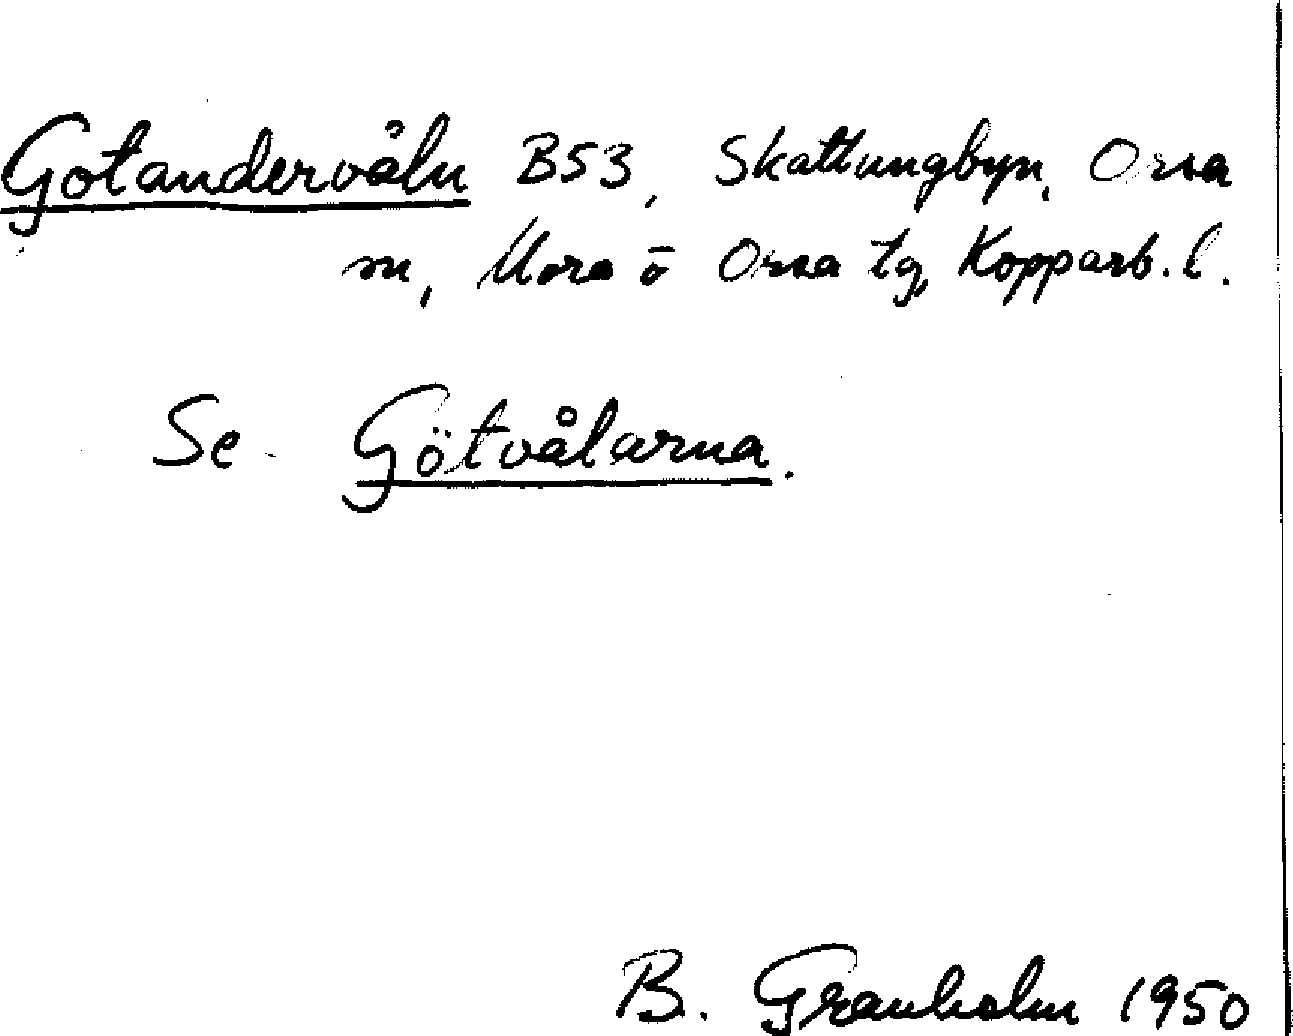 Gotandervåln B53, Skattungbyn, Orsa
m, Mora o Orsa tg, Kopparb. l.
Se Götvålarna.
B. Granholm 1950